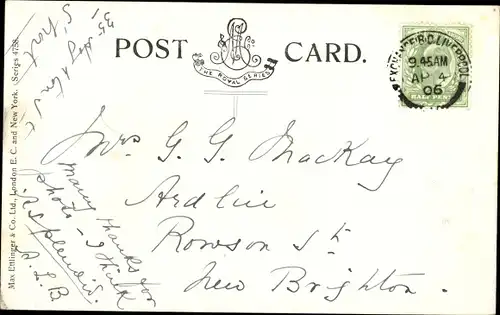 POST CARD.
THE ROYAL SERIES
EXCHANGE B.O. LIVERPOOL
9.45AM
AP 4
05
HALF PENNY
Max Ettlinger & Co. Ltd., London E. C. and New York. (Series 4758.
Mrs G. G. Mackay
Rowson St.
New Brighton.
Many thanks for
photo - I think
splendid.
A. L. B